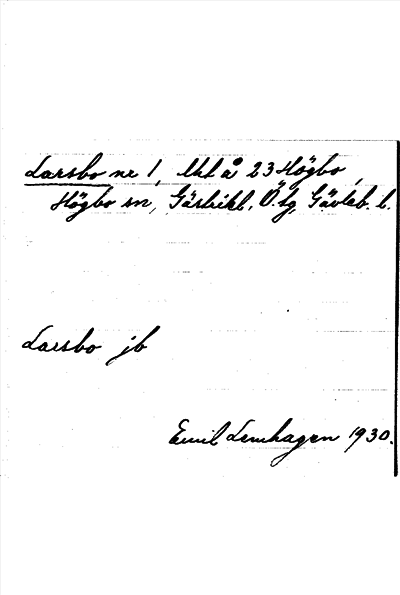 Larsbo nr 1, Utl å 23 Högbo,
Högbo sn, Gästrikl. Ö. tg, Gävleb. l.
Larsbo jb
Emil Lemhagen 1930.